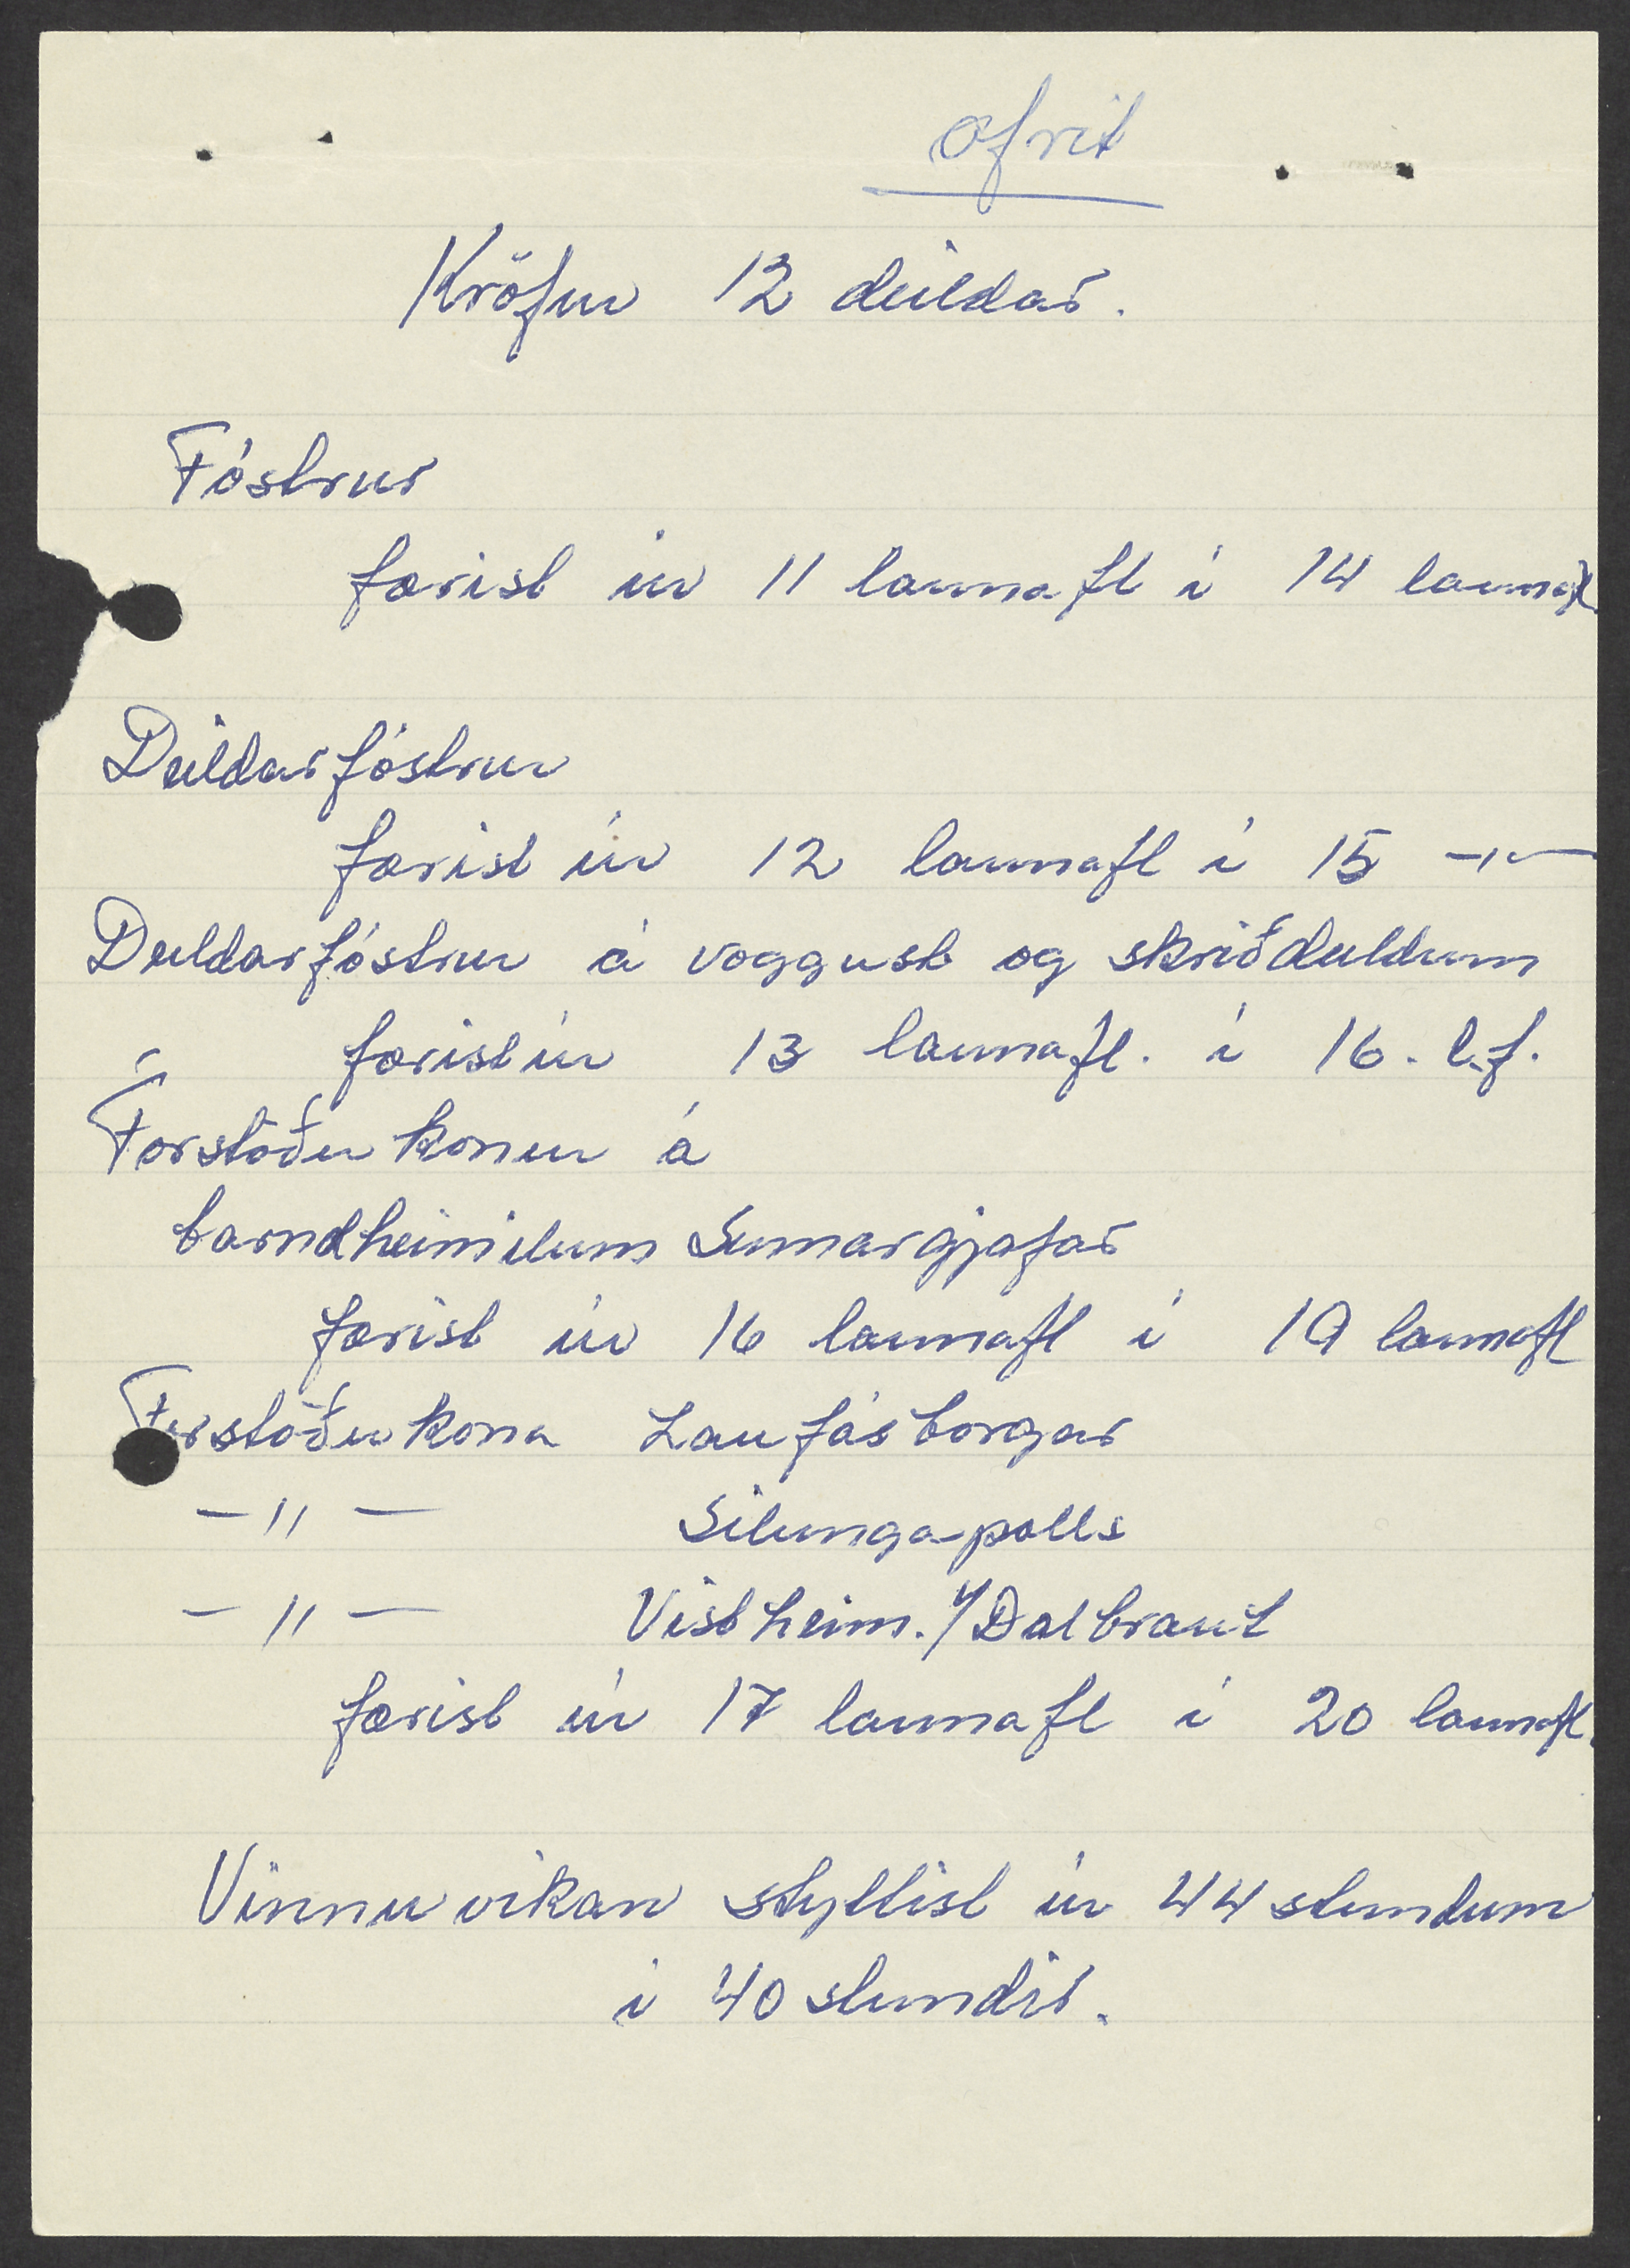 afrit
Kröfur 12 deildar.
Fóstrur
færist úr 11 launafl í 14 launafl
Deildarfóstrur
færist úr 12 launafl í 15 -"-
Deildarfóstrur á voggust og skriðdeildum
færist úr 13 launafl. í 16. l.f.
Forstöðukonur á
barnaheimilum Sumargjafar
færist úr 16 launafl í 19 launafl
Forstöðukona Laufásborgar
-"- Silungapolls
-"- Vistheim. v/Dalbraut
færist úr 17 launafl í 20 launafl.
Vinnuvikan styttist úr 44 stundum
í 40 stundir.